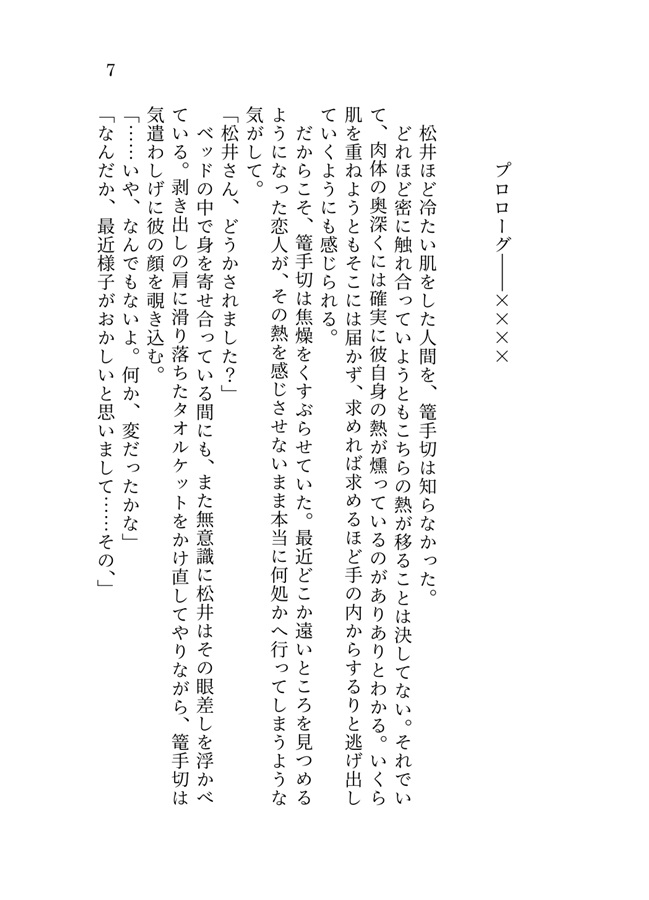 プロローグ――××××
松井ほど冷たい肌をした人間を、篭手切は知らなかった。
どれほど密に触れ合っていようともこちらの熱が移ることは決してない。それでい
て、肉体の奥深くには確実に彼自身の熱が燻っているのがありありとわかる。いくら
肌を重ねようともそこには届かず、求めれば求めるほど手の内からするりと逃げ出し
ていくようにも感じられる。
だからこそ、篭手切は焦燥をくすぶらせていた。最近どこか遠いところを見つめる
ようになった恋人が、その熱を感じさせないまま本当に何処かへ行ってしまうような
気がして。
「松井さん、どうかされました？」
ベッドの中で身を寄せ合っている間にも、また無意識に松井はその眼差しを浮かべ
ている。剥き出しの肩に滑り落ちたタオルケットをかけ直してやりながら、篭手切は
気遣わしげに彼の顔を覗き込む。
「……いや、なんでもないよ。何か、変だったかな」
「なんだか、最近様子がおかしいと思いまして……その、」
7